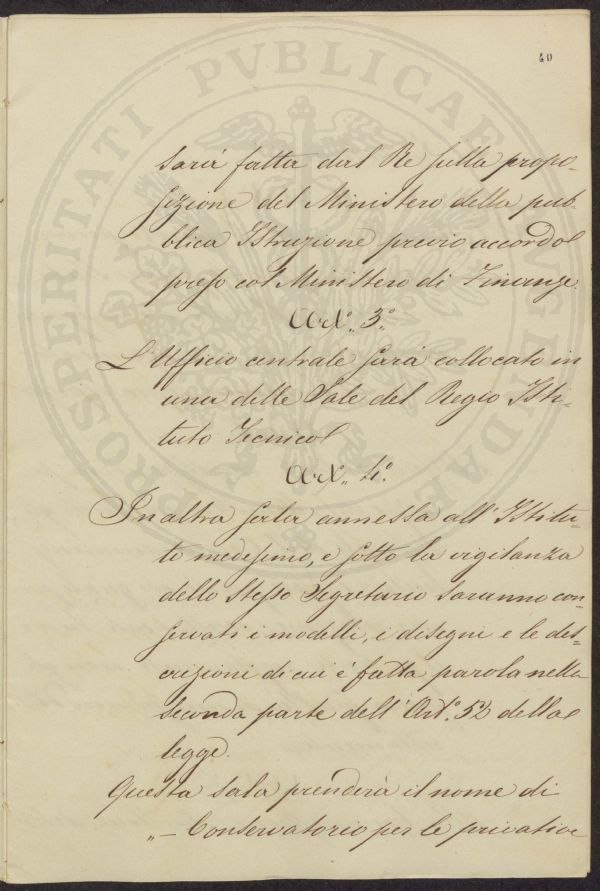 40
sarà fatta dal Re sulla propo-
sizione del Ministero della pub-
blica Istruzione previo accordo
preso col Ministero di Finanze.
Art.° 3.°
L'Ufficio centrale sarà collocato in
una delle Sale del Regio Isti-
tuto Tecnico
Art.° 4.°
In altra sala annessa all'Istitu-
to medesimo, e sotto la vigilanza
dello stesso Segretario saranno con-
servati i modelli, i disegni e le des-
crizioni di cui è fatta parola nella
seconda parte dell'Art.° 52 della
legge.
Questa sala prenderà il nome di
„— Conservatorio per le privative
PROSPERITATI PVBLICAE AVGENDAE